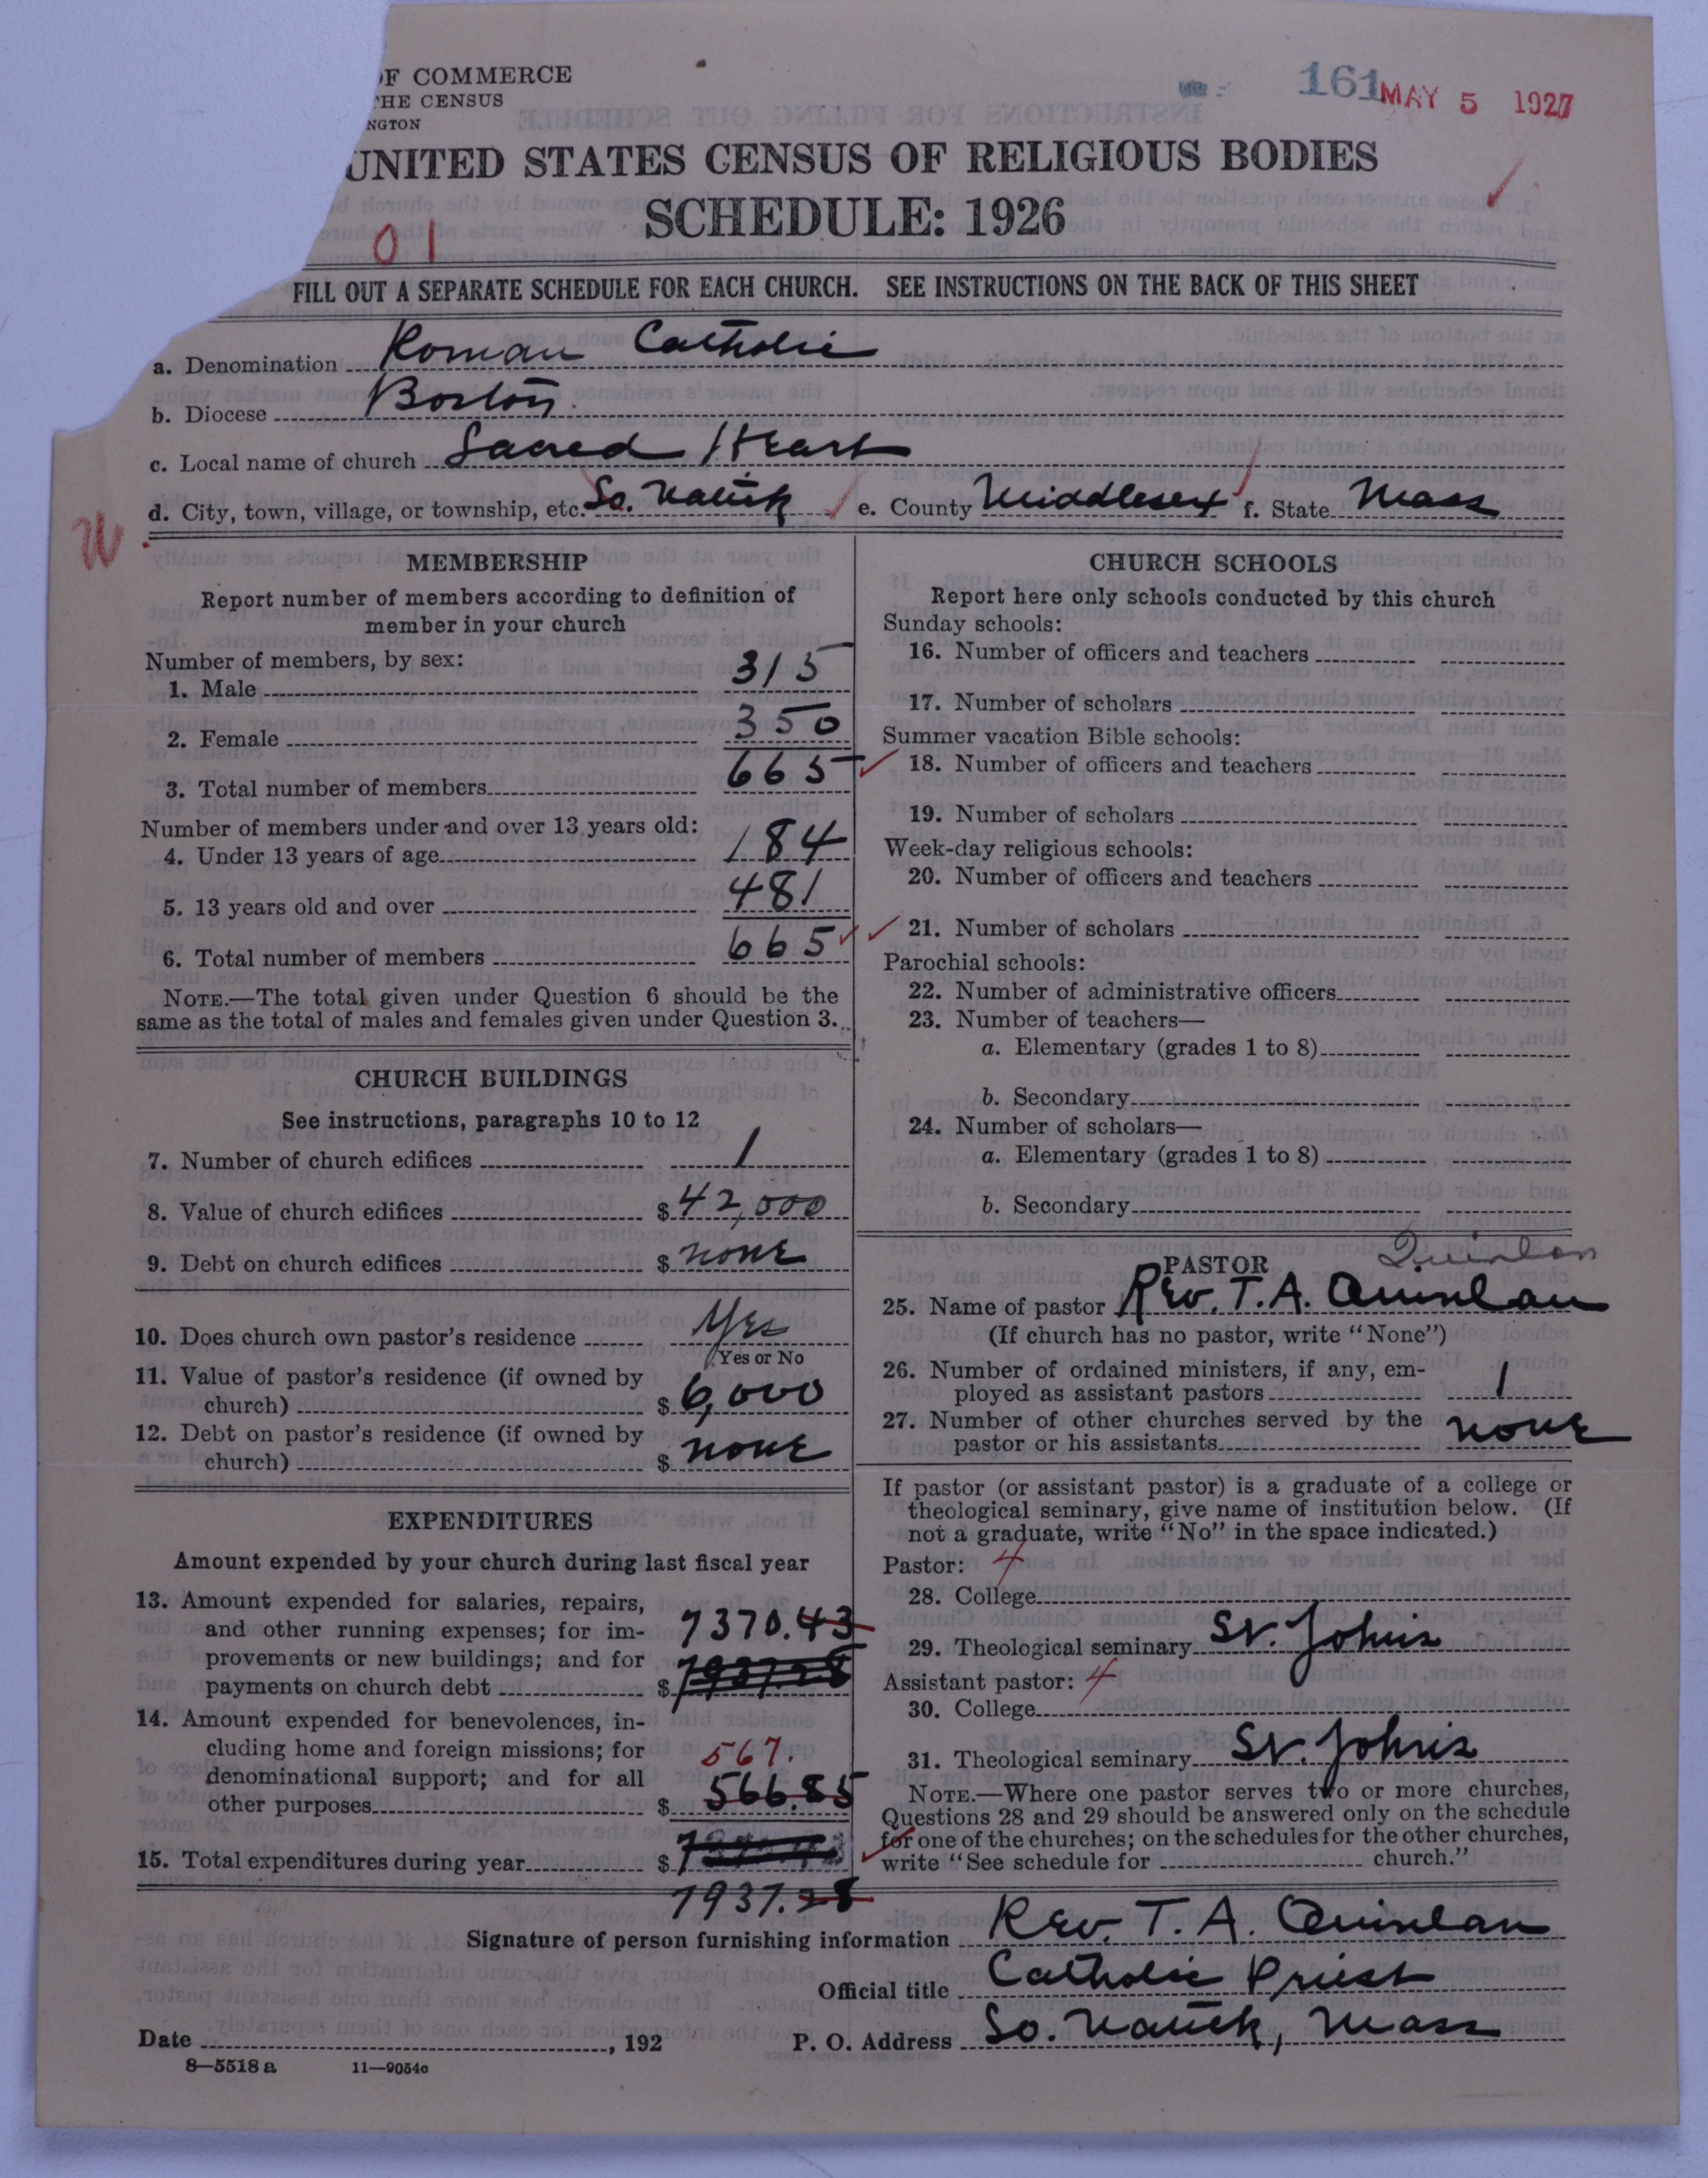 OF COMMERCE
THE CENSUS
NGTON
161
MAY 5 1927
UNITED STATES CENSUS OF RELIGIOUS BODIES
SCHEDULE: 1926
01
FILL OUT A SEPARATE SCHEDULE FOR EACH CHURCH. SEE INSTRUCTIONS ON THE BACK OF THIS SHEET
a. Denomination Roman Catholic
b. Diocese Boston
c. Local name of church Sacred Heart
d. City, town, village, or township, etc. So. Natick e. County Middlesex f. State Mass
MEMBERSHIP
Report number of members according to definition of
member in your church
Number of members, by sex:
1. Male 315
2. Female 350
3. Total number of members 665
Number of members under and over 13 years old:
4. Under 13 years of age 184
5. 13 years old and over 481
6. Total number of members 665
NOTE.—The total given under Question 6 should be the
same as the total of males and females given under Question 3.
CHURCH BUILDINGS
See instructions, paragraphs 10 to 12
7. Number of church edifices 1
8. Value of church edifices $ 42,000
9. Debt on church edifices $ none
10. Does church own pastor's residence Yes
Yes or No
11. Value of pastor's residence (if owned by
church) $ 6,000
12. Debt on pastor's residence (if owned by
church) $ none
EXPENDITURES
Amount expended by your church during last fiscal year
13. Amount expended for salaries, repairs,
and other running expenses; for im- 7370.43
provements or new buildings; and for
payments on church debt $ 7937.28
14. Amount expended for benevolences, in-
cluding home and foreign missions; for 567.
denominational support; and for all
other purposes $ 566.85
15. Total expenditures during year $
7937.28
CHURCH SCHOOLS
Report here only schools conducted by this church
Sunday schools:
16. Number of officers and teachers
17. Number of scholars
Summer vacation Bible schools:
18. Number of officers and teachers
19. Number of scholars
Week-day religious schools:
20. Number of officers and teachers
21. Number of scholars
Parochial schools:
22. Number of administrative officers
23. Number of teachers—
a. Elementary (grades 1 to 8)
b. Secondary
24. Number of scholars—
a. Elementary (grades 1 to 8)
b. Secondary
Quinlan
PASTOR
25. Name of pastor Rev. T. A. Quinlan
(If church has no pastor, write "None")
26. Number of ordained ministers, if any, em-
ployed as assistant pastors 1
27. Number of other churches served by the
pastor or his assistants none
If pastor (or assistant pastor) is a graduate of a college or
theological seminary, give name of institution below. (If
not a graduate, write "No" in the space indicated.)
Pastor: 4
28. College
29. Theological seminary St. Johns
Assistant pastor: 4
30. College
31. Theological seminary St. Johns
NOTE.—Where one pastor serves two or more churches,
Questions 28 and 29 should be answered only on the schedule
for one of the churches; on the schedules for the other churches,
write "See schedule for church."
Signature of person furnishing information Rev. T. A. Quinlan
Official title Catholic Priest
Date , 192 P. O. Address So. Natick, Mass
8—5518 a 11—9054c